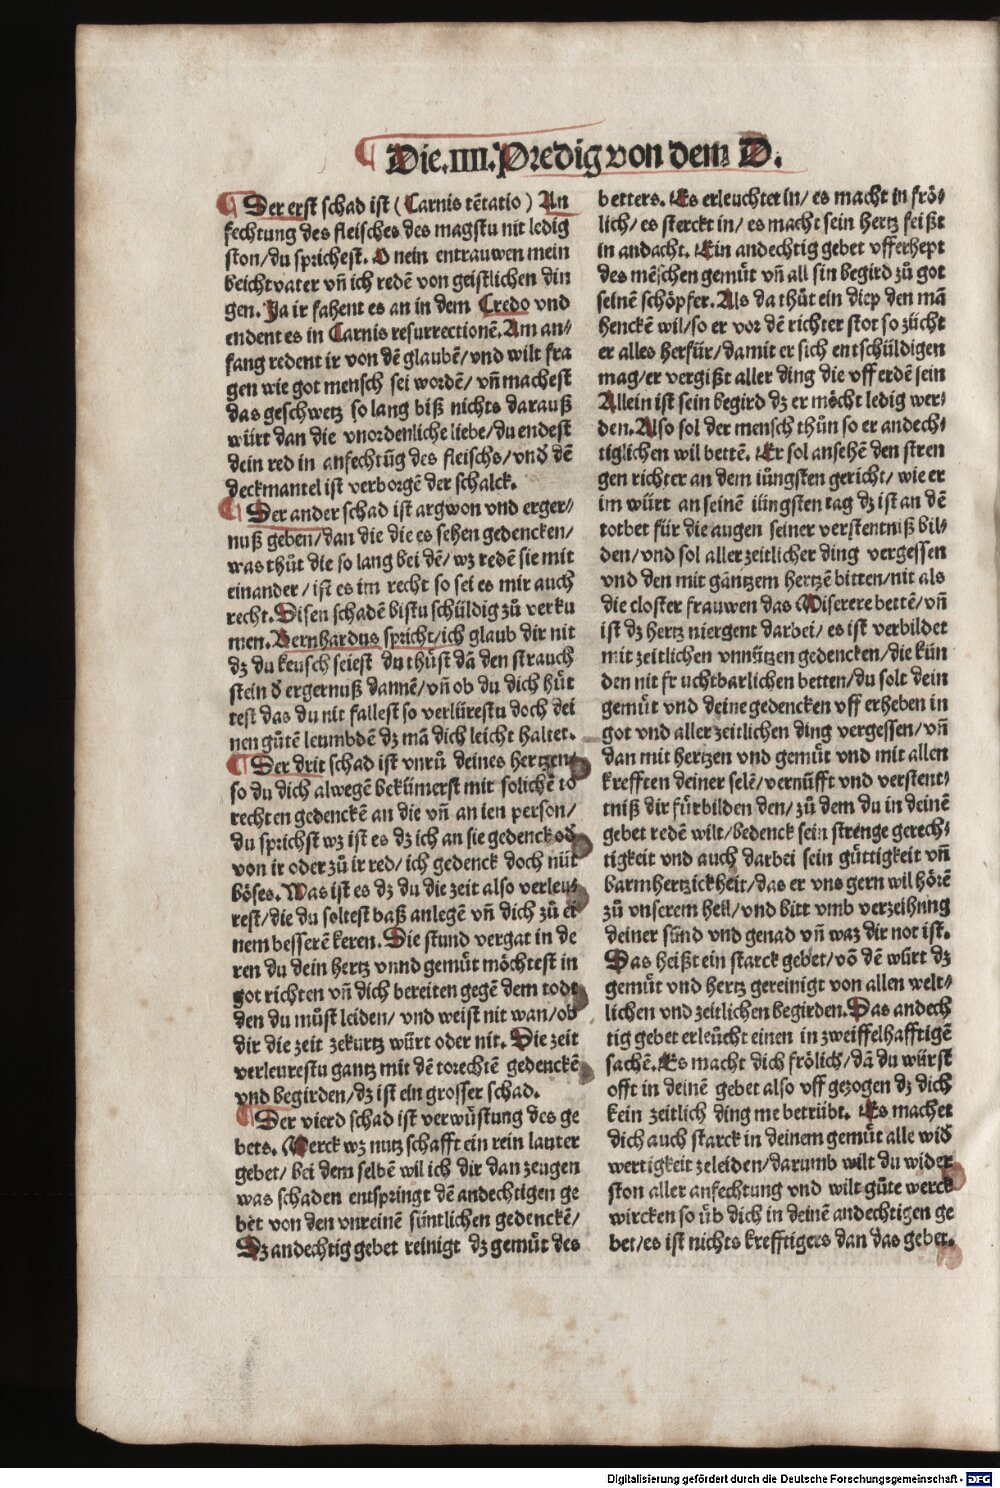 Die .IIII. Predig von dem D.
Der erst schad ist (Carnis tētatio) An
fechtung des fleisches des magstu nit ledig
ston/du sprichest. O nein entrauwen mein
beichtvater vñ ich redē von geistlichen din
gen. Ja ir fahent es an in dem Credo vnd
endent es in Carnis resurrectionē. Am an⸗
fang redent ir von dē glaubē/vnd wilt fra
gen wie got mensch sei wordē/ vñ machest
das geschwetz so lang biß nichts darauß
würt dan die vnordenliche liebe/du endest
dein red in anfechtūg des fleischs/vnd dē
deckmantel ist verborgē der schalck.
Der ander schad ist argwon vnd erger⸗
nuß geben/dan die die es sehen gedencken/
was thůt die so lang bei dē/wz redē sie mit
einander/ist es im recht so sei es mir auch
recht. Disen schadē bistu schüldig zů verku
men. Bernhardus spricht/ich glaub dir nit
dz du keusch seiest du thůst dā den strauch
stein đ ergernuß dannē/vñ ob du dich hüt
test das du nit fallest so verlürestu doch dei
nen gůtē leumbdē dz mā dich leicht haltet.
Der drit schad ist vnrů deines hertzen⸗
so du dich alwegē bekümerst mit solichē to
rechten gedenckē an die vñ an ien person/
du sprichst wz ist es dz ich an sie gedenck ođ
von ir oder zů ir red/ ich gedenck doch nüt
böses. Was ist es dz du die zeit also verleu⸗
rest/die du soltest baß anlegē vñ dich zů ei
nem besserē keren. Die stund vergat in de
ren du dein hertz vnnd gemüt möchtest in
got richten vñ dich bereiten gegē dem todt
den du můst leiden/ vnd weist nit wan/ob
dir die zeit zekurtz würt oder nit. Die zeit
verleurestu gantz mit dē torechtē gedenckē
vnd begirden/dz ist ein grosser schad.
Der vierd schad ist verwüstung des ge
bets. Merck wz nutz schafft ein rein lauter
gebet/ bei dem selbē wil ich dir dan zeugen
was schaden entspringt dē andechtigen ge
bet von den vnreinē süntlichen gedenckē/
Dz andechtig gebet reinigt dz gemüt des
betters. Es erleuchtet in/ es macht in frö⸗
lich/ es sterckt in/ es macht sein hertz feißt
in andacht. Ein andechtig gebet vfferhept
des mēschen gemüt vñ all sin begird zů got
seinē schöpfer. Als da thůt ein diep den mā
henckē wil/so er vor dē richter stot so zücht
er alles herfür/damit er sich entschüldigen
mag/er vergißt aller ding die vff erdē sein
Allein ist sein begird dz er möcht ledig wer⸗
den. Also sol der mensch thůn so er andech⸗
tiglichen wil bettē. Er sol ansehē den stren
gen richter an dem iüngsten gericht/ wie er
im würt an seinē iüngsten tag dz ist an dē
totbet für die augen seiner verstentniß bil⸗
den/vnd sol aller zeitlicher ding vergessen
vnd den mit gantzem hertzē bitten/nit als
die closter frauwen das Miserere bettē/vñ
ist dz hertz niergent darbei/ es ist verbildet
mit zeitlichen vnnützen gedencken/die kün
den nit fruchtbarlichen betten/du solt dein
gemüt vnd deine gedencken vff erheben in
got vnd aller zeitlichen ding vergessen/vñ
dan mit hertzen vnd gemüt vnd mit allen
krefften deiner selē/vernüfft vnd verstent⸗
tniß dir fürbilden den/zů dem du in deinē
gebet redē wilt/bedenck sein strenge gerech⸗
tigkeit vnd auch darbei sein güttigkeit vñ
barmhertzickheit/das er vns gern wil hörē
zů vnserem heil/vnd bitt vmb verzeihung
deiner sünd vnd genad vñ waz dir not ist.
Das heißt ein starck gebet/vō dē würt dz
gemüt vnd hertz gereinigt von allen welt⸗
lichen vnd zeitlichen begirden. Das andech
tig gebet erleücht einen in zweiffelhafftigē
sachē. Es macht dich frölich/dā du würst
offt in deinē gebet also vff gezogen dz dich
kein zeitlich ding me betrübt. Es machet
dich auch starck in deinem gemüt alle wiđ
wertigkeit zeleiden/darumb wilt du wider
ston aller anfechtung vnd wilt gůte werck
wircken so üb dich in deinē andechtigen ge
bet/es ist nichts krefftigers dan das gebet.
Digitalisierung gefördert durch die Deutsche Forschungsgemeinschaft - DFG